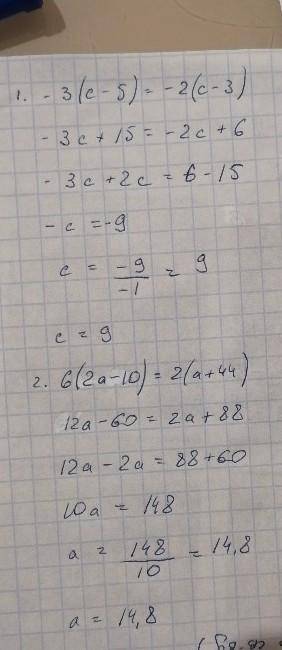 1. - 3(c - 5) = -2(c - 3)
- 3c + 15 = -2c + 6
- 3c + 2c = 6 - 15
- c = -9
c = -9/-1 = 9
c = 9
2. 6(2a - 10) = 2(a + 44)
12a - 60 = 2a + 88
12a - 2a = 88 + 60
10a = 148
a = 148/10 = 14,8
a = 14,8